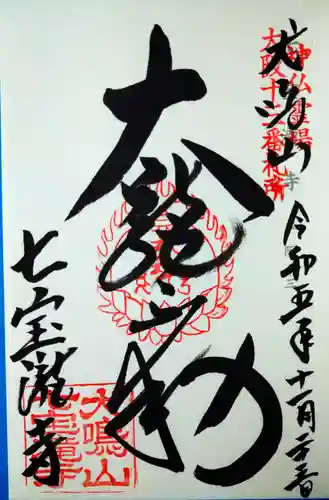 神仏霊場
大阪十三番札所
犬鳴山
令和五年十一月
大龍不動
七宝瀧寺
犬鳴山
七宝瀧寺